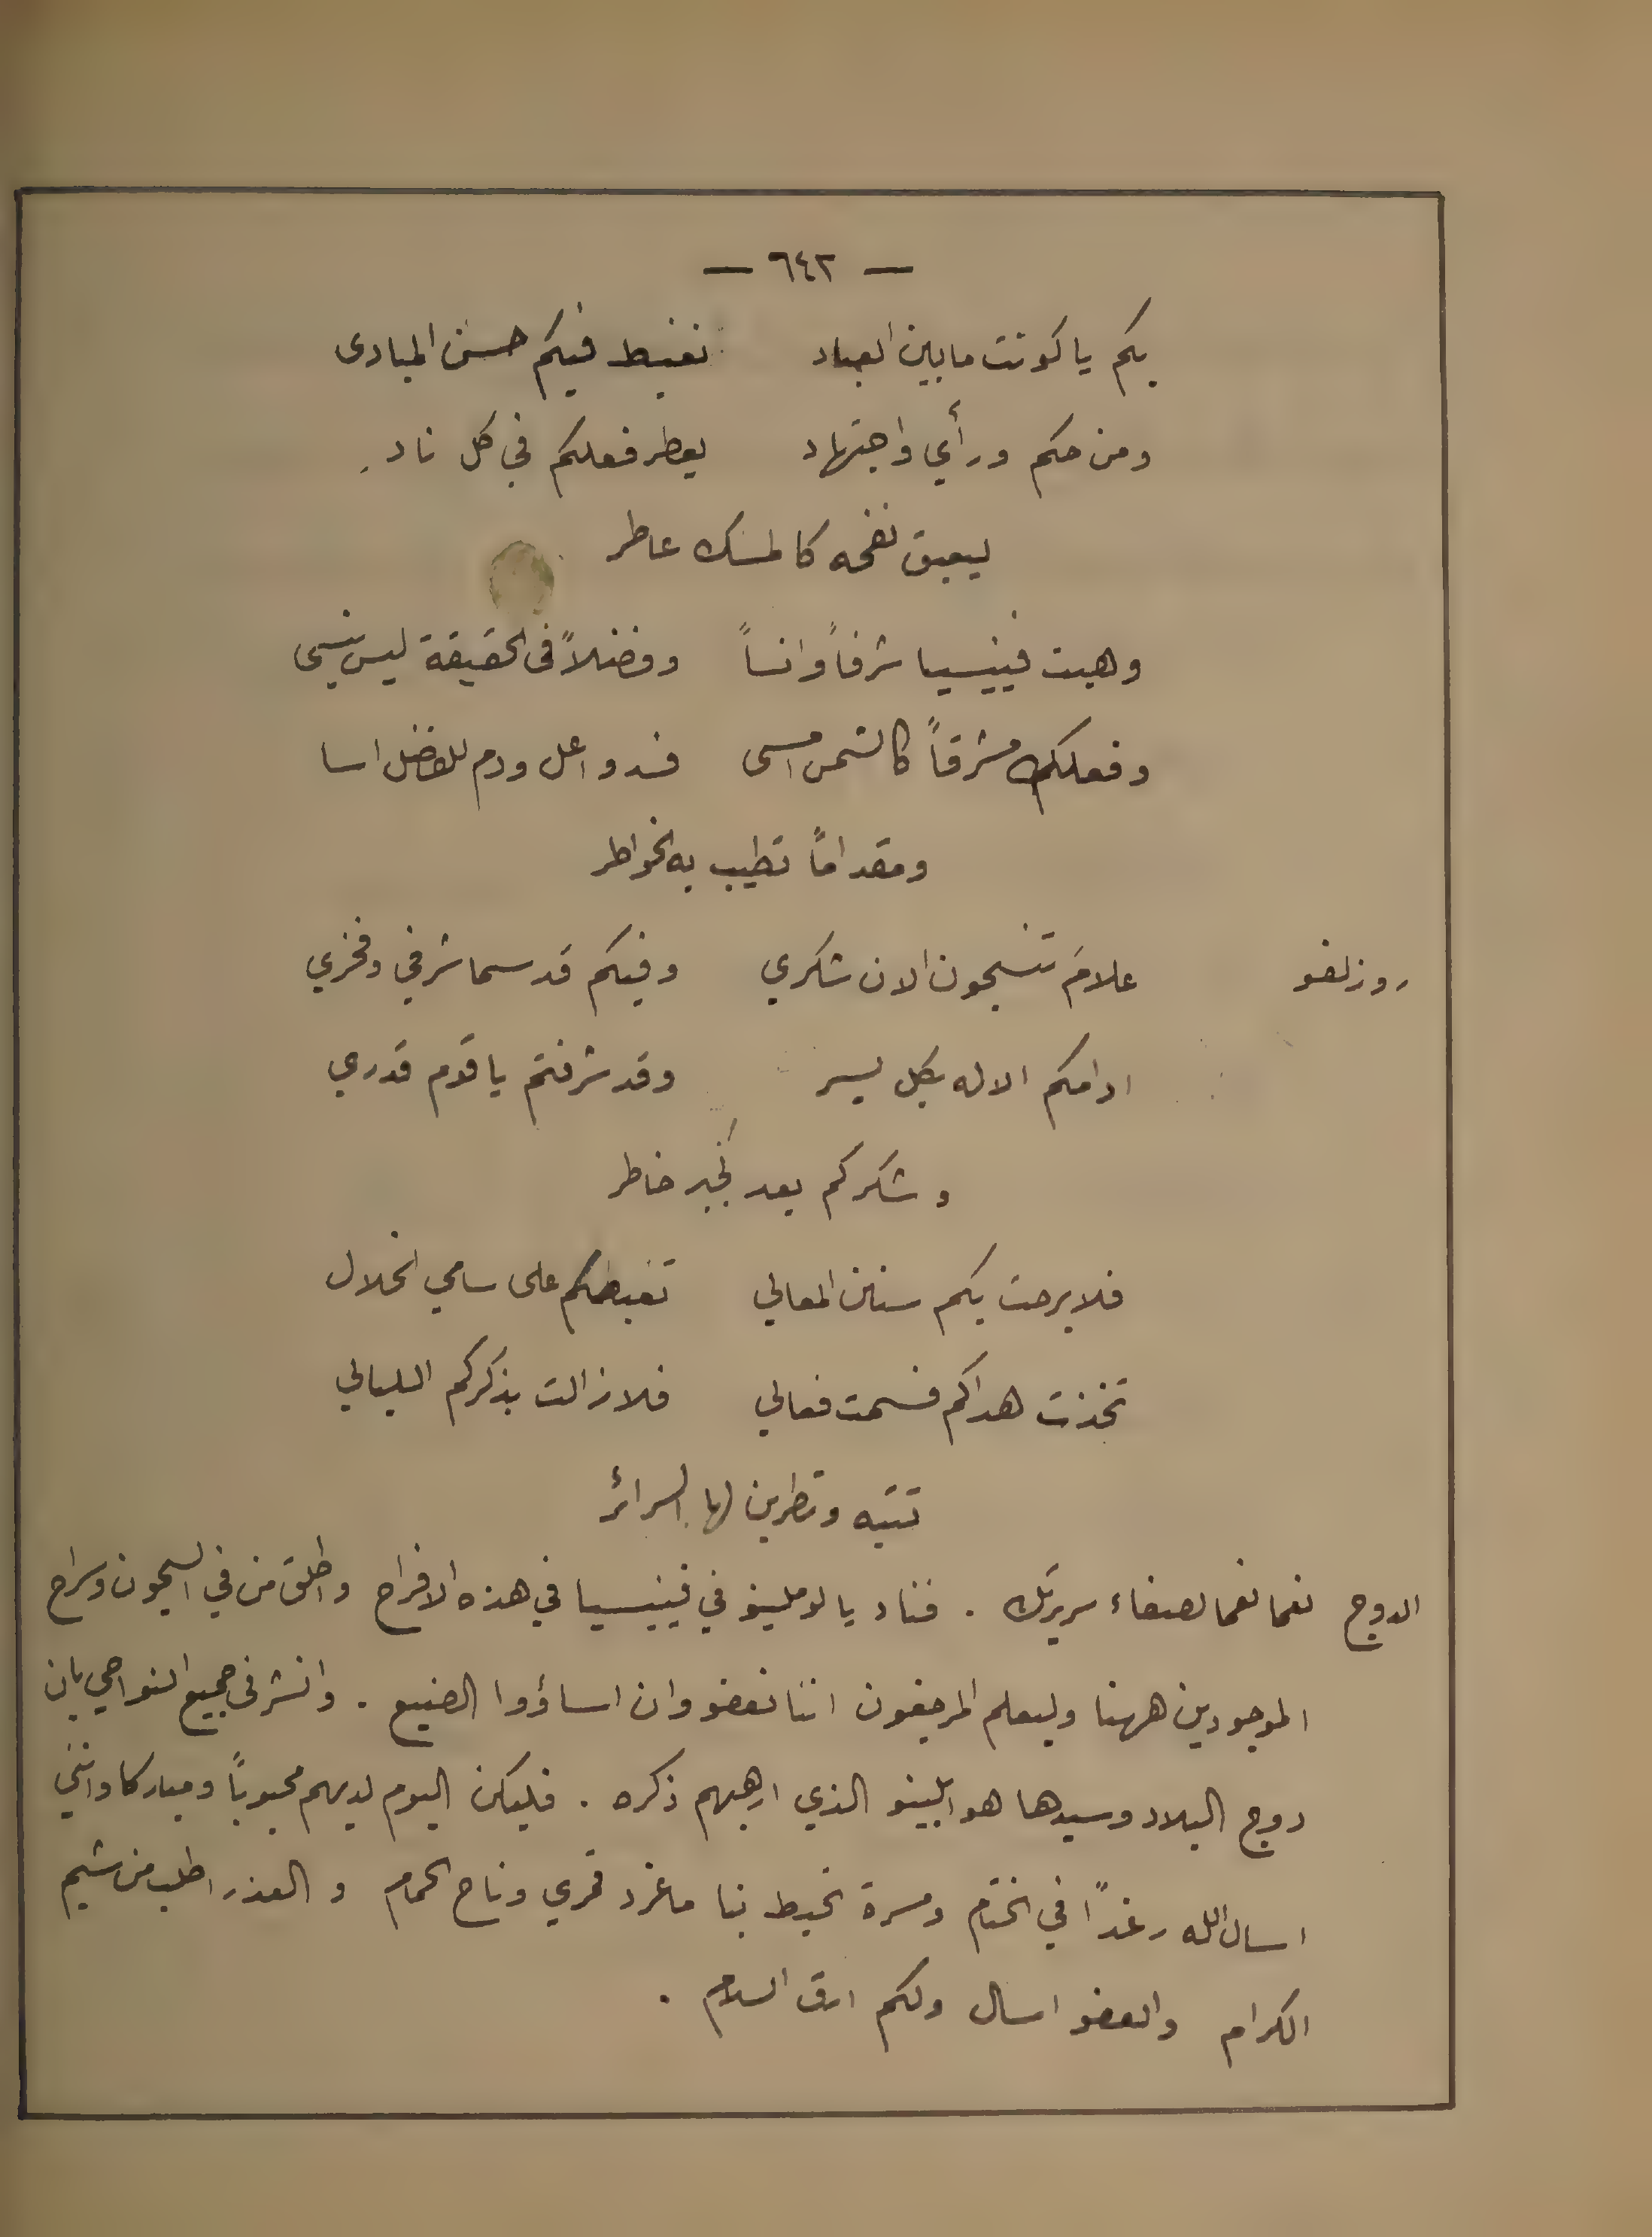 — ٦٤٢ —
بكم يا كونت ما بين العباد نغبط فيكم حسن المبادى
ومن حكم ورأي واجتهاد يعطر فعلكم في كل ناد
ليعبق نفحه كالمسك عاطر
وهبت فينيسيا شرفاً وانساً وفضلاً في الحقيقة ليس ينسى
وفعلكم مشرقاً كالشمس امسى فسد واعل ودم للفضل اسا
ومقداماً تطيب به الخواطر
روزلفو علامَ تنسجون الان شكري وفيكم قد سما شرفي وفخري
ادامكم الاله بكل يسر وقد شرفتم يا قوم قدري
وشكركم يعد لجبر خاطر
فلا برحت بكم سنن المعالي تغبطكم على سامي الخلال
تخذت هداكم فسمت فعالي فلا زالت بذكركم الليالي
تتيه وتطربن لها السرائر
الدوج نعما نعما لصفاء سريرتك . فناد يا لوملينو في فينيسيا في هذه الافراح واطلق من في السجون وسراح
الموجودين ههنا وليعلم المرجفون اننا نعفو وان اساؤوا الصنيع . وانشر في جميع النواحي بان
دوج البلاد وسيدها هو ابلينو الذي ارهبهم ذكره . فليكن اليوم لديهم محبوباً ومباركا وانني
اسال الله رغداً في الختام ومسرة تحيط بنا ما غرد قمري وناح الحمام والعذر اطلب من شيم
الكرام والعفو اسال ولكم ارق السلام .